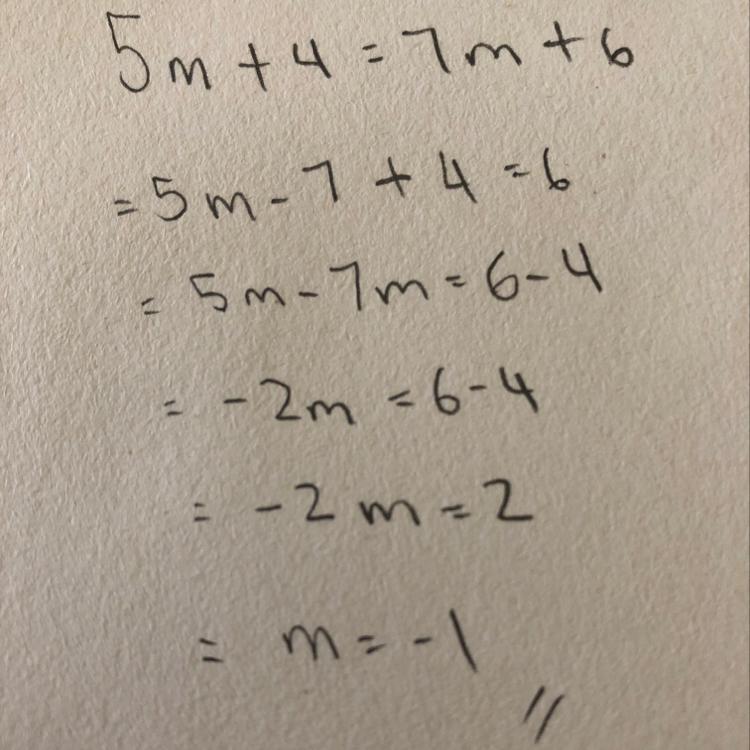 5m + 4 = 7m + 6
= 5m - 7 + 4 = 6
= 5m - 7m = 6 - 4
= -2m = 6 - 4
= -2m = 2
= m = -1
//